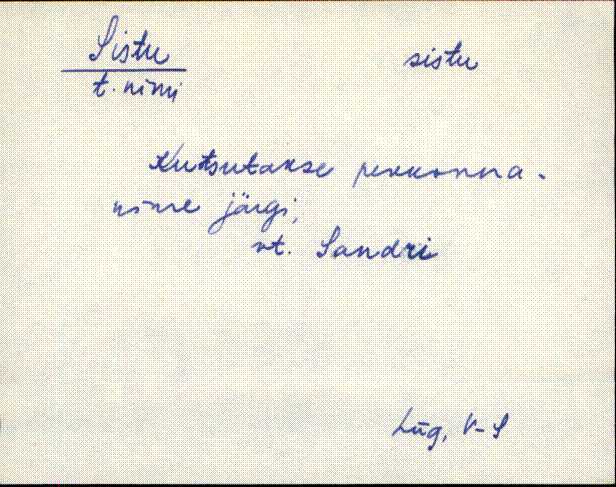 Sistu sistu
t. nimi
Kutsutakse perekonna-
nime järgi,
vt. Sandri
Lüg, V-S